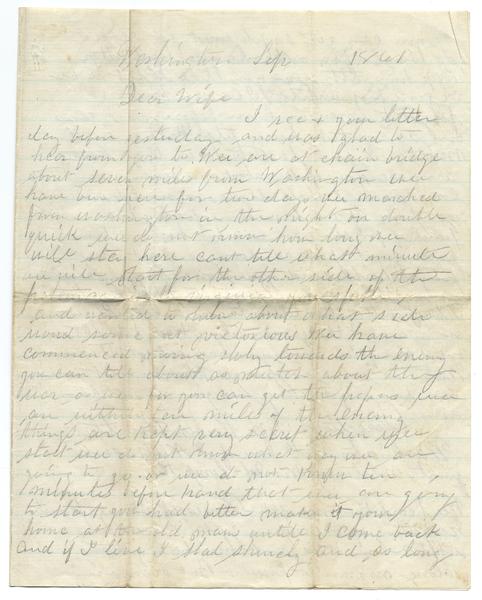 Washington Sep 1861
Dear Wife
I rec d your letter
day before yesterday and was glad to
hear from you We are at chain bridge
about seven miles from Washington we
have bin here for two days we marched
from washington in the night on double
quick we do not know how long we
will stay here cant tell what minute
we will start for the other side of the
and wanted to about what
some victorious We have
commenced moving sloly towards the enemy
you can tell about as much about the
war as we for you can get the papers we
are within four miles of the enemy
things are kept very secret when we
start we do not know what way we are
going to go or we do not know ten
minutes before hand that we are going
to start you had better make it your
home at the old man until I come back
and if I live I shal and as long